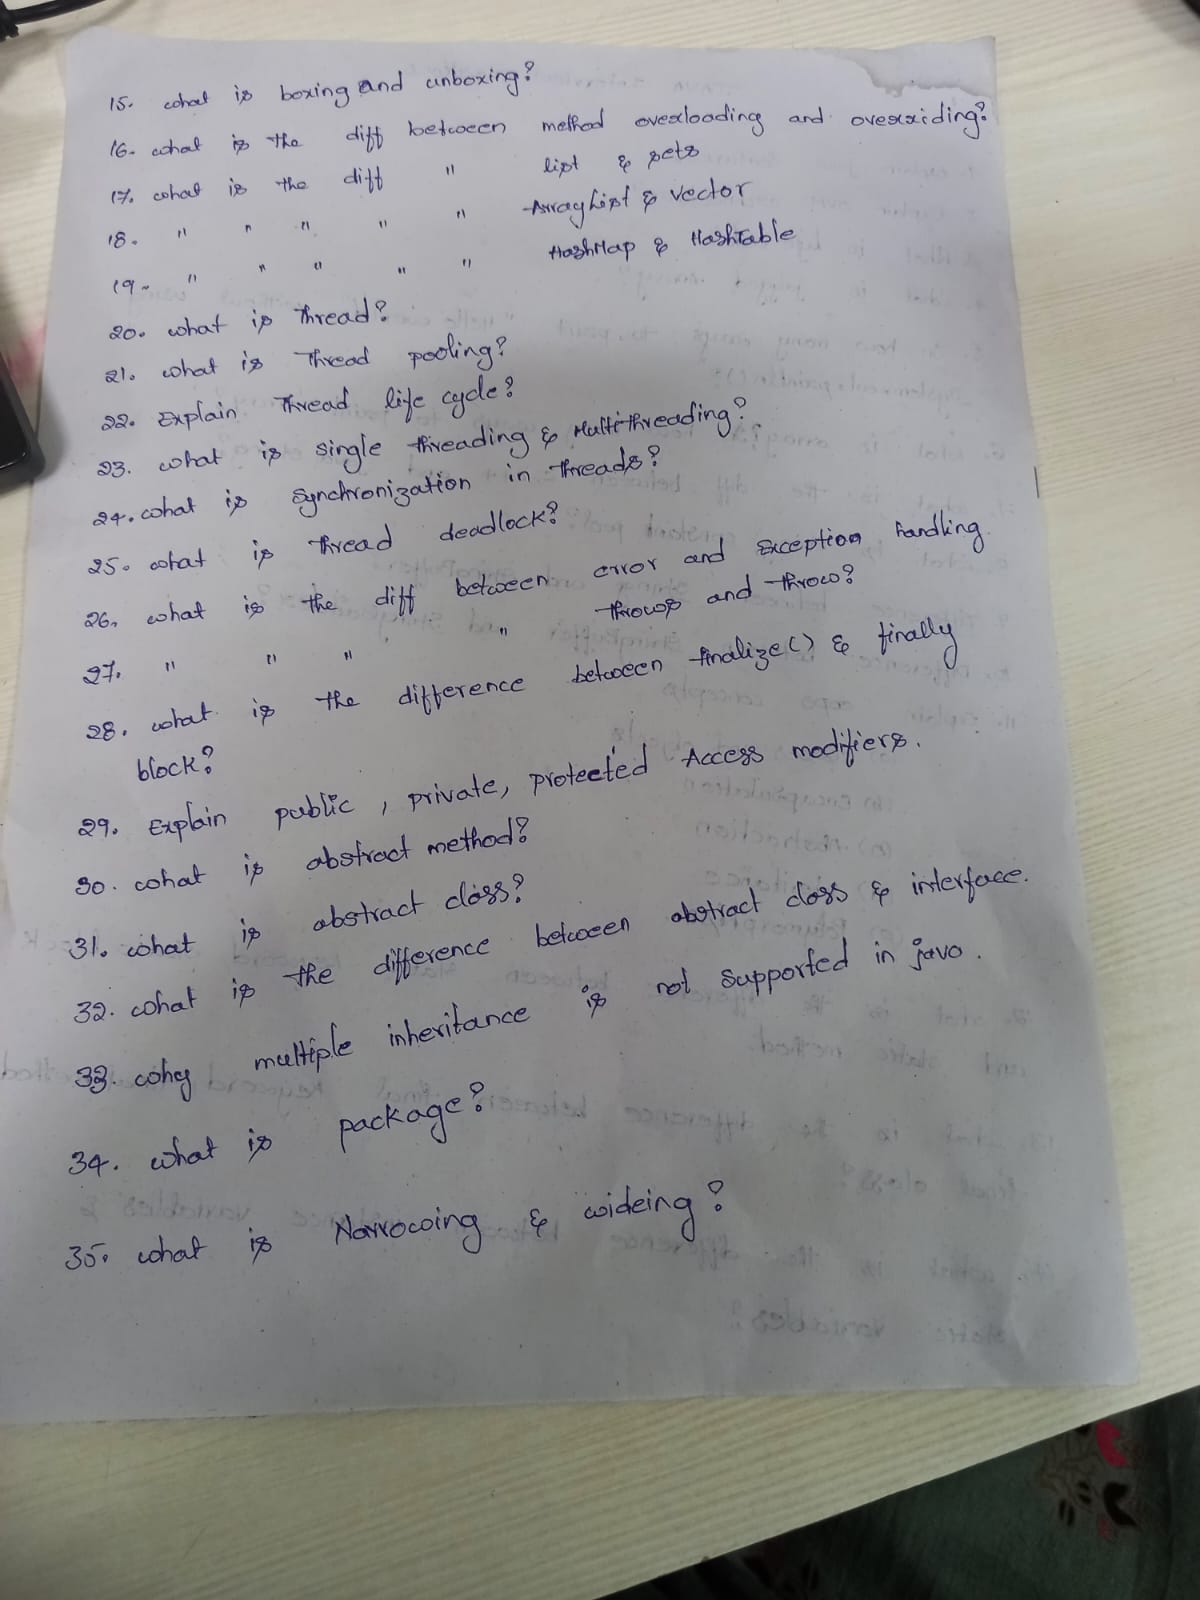 15. what is boxing and unboxing?
16. what is the diff between method overloading and overriding?
17. what is the diff " list & sets
18. " " " " " ArrayList & vector
19. " " " " " HashMap & HashTable
20. what is Thread?
21. what is Thread pooling?
22. Explain Thread life cycle?
23. what is single threading & Multithreading?
24. what is Synchronization in threads?
25. what is Thread deadlock?
26. what is the diff between error and Exception handling
27. " " " " throws and throw?
28. what is the difference between finalize() & finally
block?
29. Explain public, private, protected Access modifiers.
30. what is abstract method?
31. what is abstract class?
32. what is the difference between abstract class & interface.
33. why multiple inheritance is not supported in java.
34. what is package?
35. what is Narrowing & wideing?